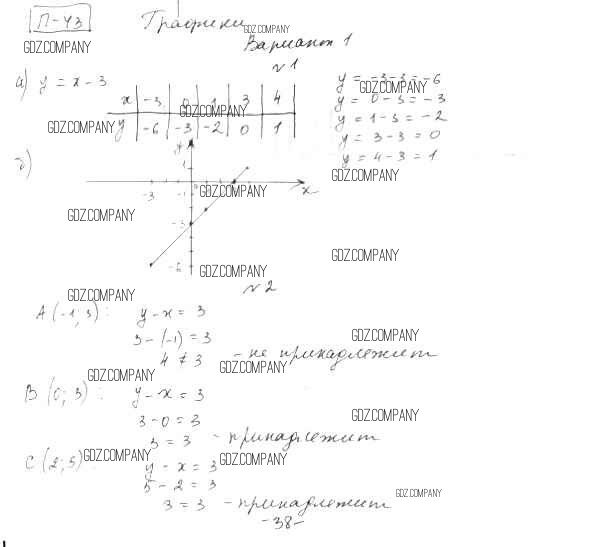 П-43 Графики
GDZ.COMPANY
GDZ.COMPANY Вариант 1
№1
а) y = x - 3
x -3 0 1 3 4
y -6 -3 -2 0 1
GDZ.COMPANY
GDZ.COMPANY
y = -3-3 = -6
GDZ.COMPANY
y = 0-3 = -3
y = 1-3 = -2
y = 3-3 = 0
y = 4-3 = 1
GDZ.COMPANY
б) y
1
-3 -1
x
GDZ.COMPANY
GDZ.COMPANY
-3
GDZ.COMPANY
-6
GDZ.COMPANY
№2
GDZ.COMPANY
A (-1; 3): y - x = 3
3 - (-1) = 3
GDZ.COMPANY
4 ≠ 3 - не принадлежит
GDZ.COMPANY
GDZ.COMPANY
B (0; 3): y - x = 3
3 - 0 = 3
GDZ.COMPANY
3 = 3 - принадлежит
C (2; 5) y - x = 3
GDZ.COMPANY
GDZ.COMPANY
5 - 2 = 3
GDZ.COMPANY
3 = 3 - принадлежит
-38-